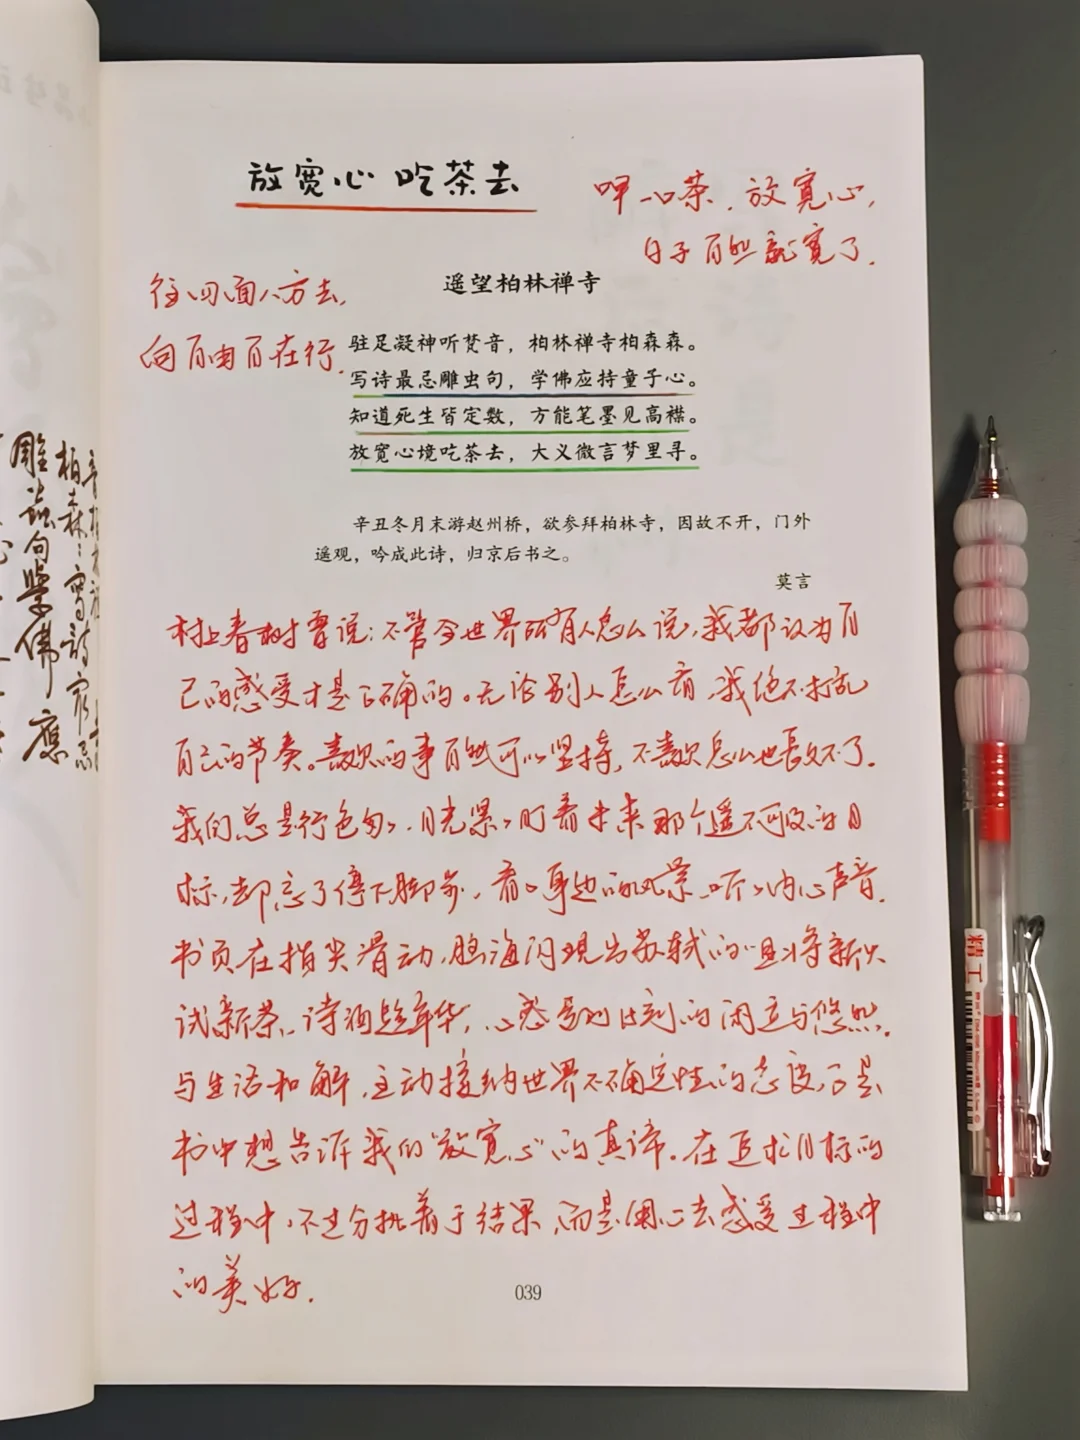 放宽心 吃茶去
呷一口茶，放宽心，
日子自然就宽了.
往四面八方去，
向自由自在行.
遥望柏林禅寺
驻足凝神听梵音，柏林禅寺柏森森。
写诗最忌雕虫句，学佛应持童子心。
知道死生皆定数，方能笔墨见高襟。
放宽心境吃茶去，大义微言梦里寻。
辛丑冬月末游赵州桥，欲参拜柏林寺，因故不开，门外
遥观，吟成此诗，归京后书之。
莫言
村上春树曾说：不管全世界所有人怎么说，我都认为自
己的感受才是正确的。无论别人怎么看，我绝不打乱
自己的节奏。喜欢的事自然可以坚持，不喜欢怎么也长久不了.
我们总是行色匆匆，目光紧紧盯着未来那个遥不可及的目
标，却忘了停下脚步，看看身边的风景，听听内心声音.
书页在指尖滑动，脑海闪现出苏轼的“且将新火
试新茶，诗酒趁年华”，心感受到片刻的闲适与悠然.
与生活和解，主动接纳世界不确定性的态度，正是
书中想告诉我们“放宽心”的真谛。在追求目标的
过程中，不过分执着于结果，而是用心去感受过程中
的美好.
039
柏森森寫詩最忌
雕蟲句學佛應
精工